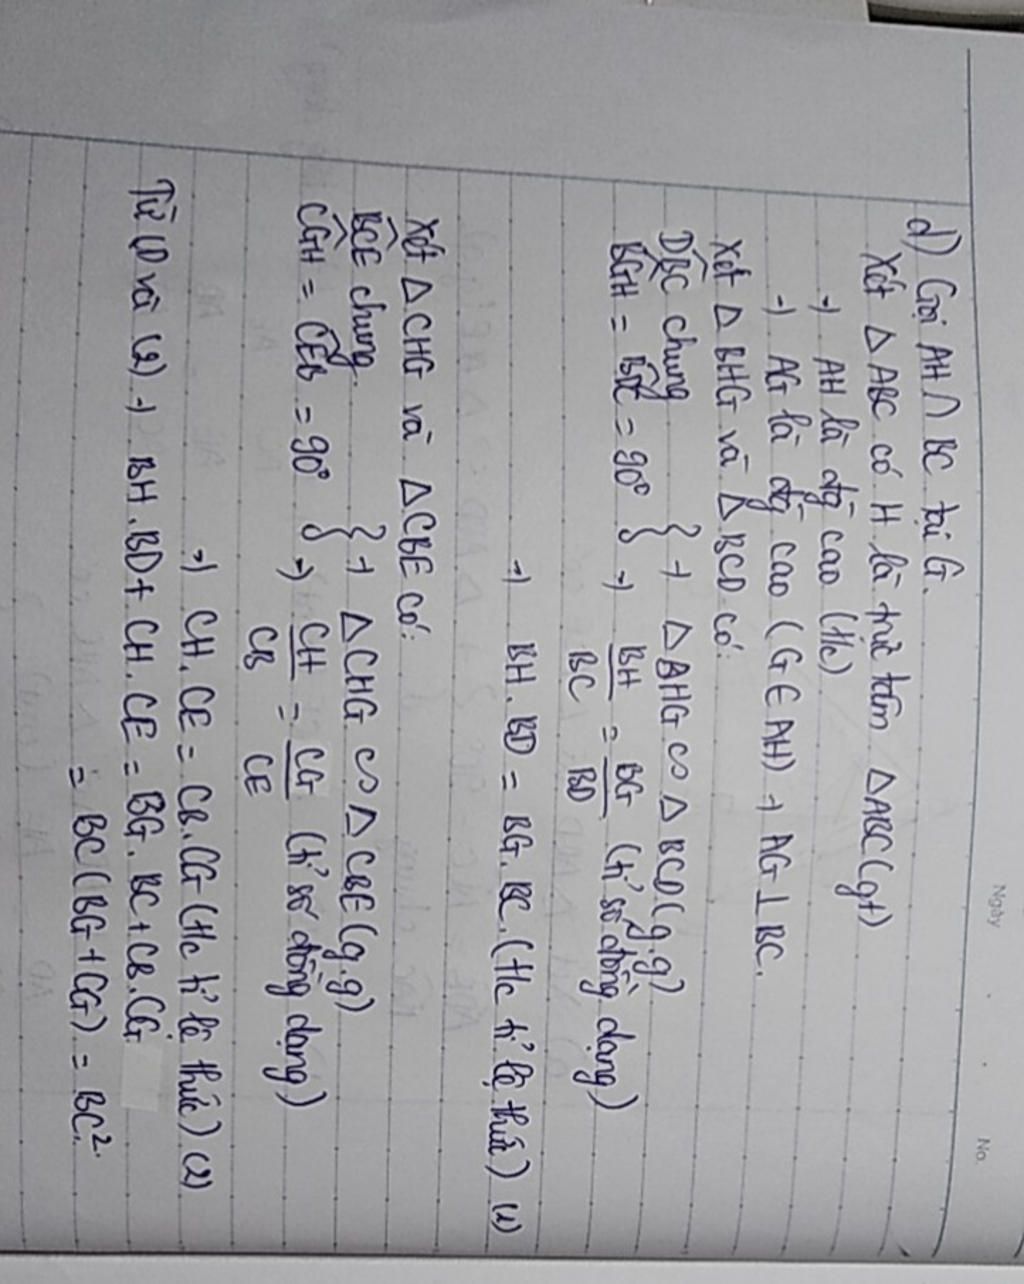 Ngày
No.
d) Gọi AH ∩ BC tại G.
Xét △ABC có H là trực tâm △ABC (gt)
→ AH là đg cao (t/c)
→ AG là đg cao (G ∈ AH) → AG ⊥ BC.
Xét △BHG và △BCD có:
D̂BC chung
BĜH = BD̂C = 90° } → △BHG ∽ △BCD (g.g)
→ BH/BC = BG/BD (tỉ số đồng dạng)
→ BH.BD = BG.BC. (t/c tỉ lệ thức) (1)
Xét △CHG và △CBE có:
BĈE chung
CĜH = CÊB = 90° } → △CHG ∽ △CBE (g.g)
→ CH/CB = CG/CE (tỉ số đồng dạng)
→ CH.CE = CB.CG (t/c tỉ lệ thức) (2)
Từ (1) và (2) → BH.BD + CH.CE = BG.BC + CB.CG
= BC(BG + CG) = BC².